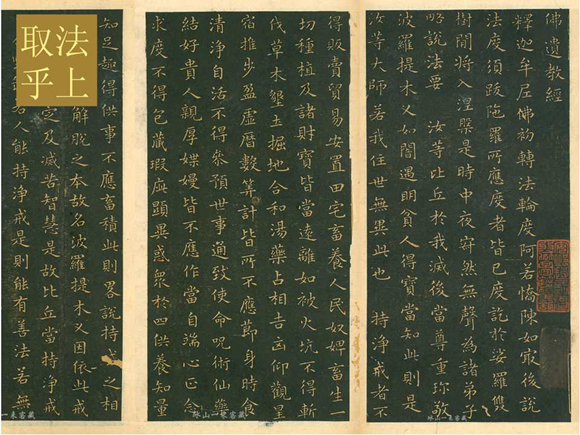 取法
乎上
佛遺教經
釋迦牟尼佛初轉法輪度阿若憍陳如最後說
法度須跋陁羅所應度者皆已度訖於娑羅雙
樹間將入涅槃是時中夜寂然無聲為諸弟子
略說法要 汝等比丘於我滅後當尊重珎敬
波羅提木叉如闇遇明貧人得寶當知此則是
汝等大師若我住世無異此也 持淨戒者不
得販賣貿易安置田宅畜養人民奴婢畜生一
切種植及諸財寶皆當遠離如避火坑不得斬
伐草木墾土掘地合和湯藥占相吉凶仰觀星
宿推步盈虛曆數筭計皆所不應節身時食
清淨自活不得參預世事通致使命呪術仙藥
結好貴人親厚媟嫚皆不應作當自端心正念
求度不得包藏瑕疵顯異惑衆於四供養知量
知足趣得供事不應畜積此則畧說持戒之相
解脫之本故名波羅提木叉因依此戒
定及滅苦智慧是故比丘當持淨戒
若人能持淨戒是則能有善法若無